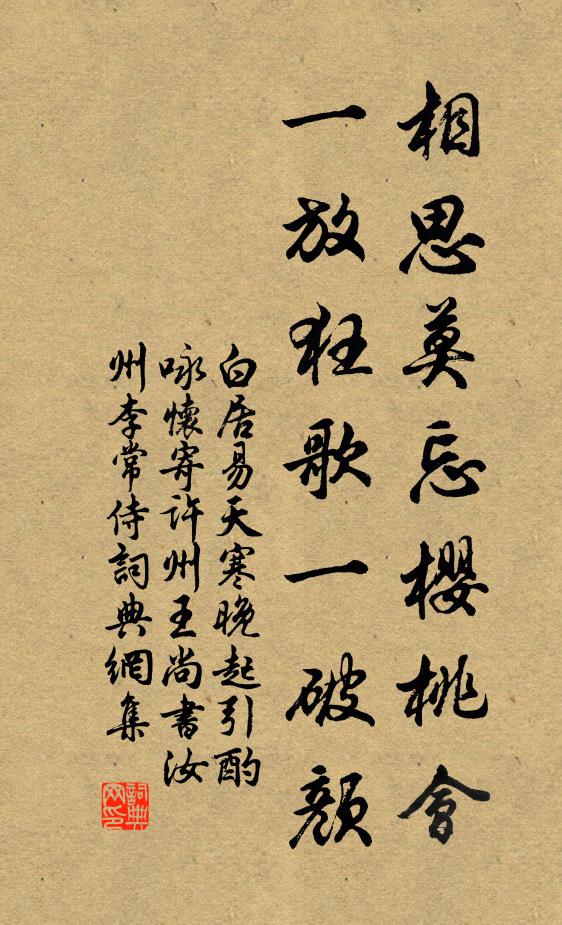 相思莫忘櫻桃會
一放狂歌一破顏
白居易天寒晚起引酌
咏懷寄許州王尚書汝
州李常侍詞典網集
詞典
网印